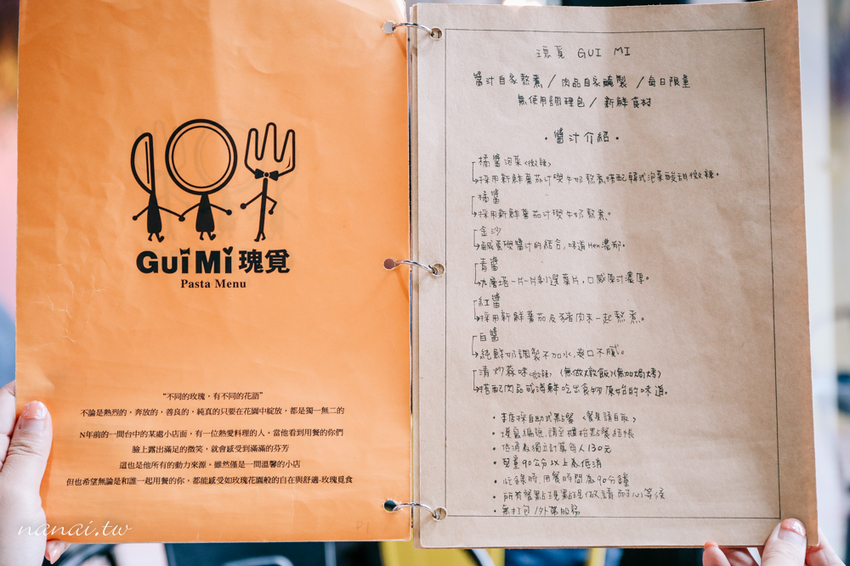 GUi Mi 瑰覓
Pasta Menu
“不同的玫瑰，有不同的花語”
不論是熱烈的。奔放的。善良的。純真的只要在花園中綻放，都是獨一無二的
N年前的一間台中的某處小店面，有一位熱愛料理的人。當他看到用餐的你們
臉上露出滿足的微笑，就會感受到滿滿的芬芳
這也是他所有的動力來源。雖然僅是一間溫馨的小店
但也希望無論是和誰一起用餐的你，都能感受如玫瑰花園般的自在與舒適-玫瑰覓食
P1
nanai.tw
瑰覓 GUI MI
醬汁自家熬煮 / 肉品自家醃製 / 每日限量
無使用調理包 / 新鮮食材
• 醬汁介紹 •
橘醬泡菜(微辣)
採用新鮮蕃茄汁與牛奶熬煮，搭配韓式泡菜酸甜微辣。
橘醬
採用新鮮蕃茄汁與牛奶熬煮。
金沙
鹹蛋與醬汁的結合，味道Hen濃郁。
青醬
片一片
選葉片，口感
濃厚。
紅醬
採用新鮮蕃茄及豬肉末一起熬煮。
白醬
純鮮奶調製不加水，爽口不膩。
清炒蒜味(微辣) (無做燉飯)(無加焗烤)
搭配肉品或海鮮吃出食物原始的味道。
• 本店採自助式點餐 (餐具請自取)
• 請寫編號，請至櫃枱點餐結帳
• 低消為獨立計算每人130元
• 嬰童90公分以上為低消
• 忙錄時，用餐時間為90分鐘
• 所有餐點現點現做，請耐心等侯
• 無打包/外帶服務